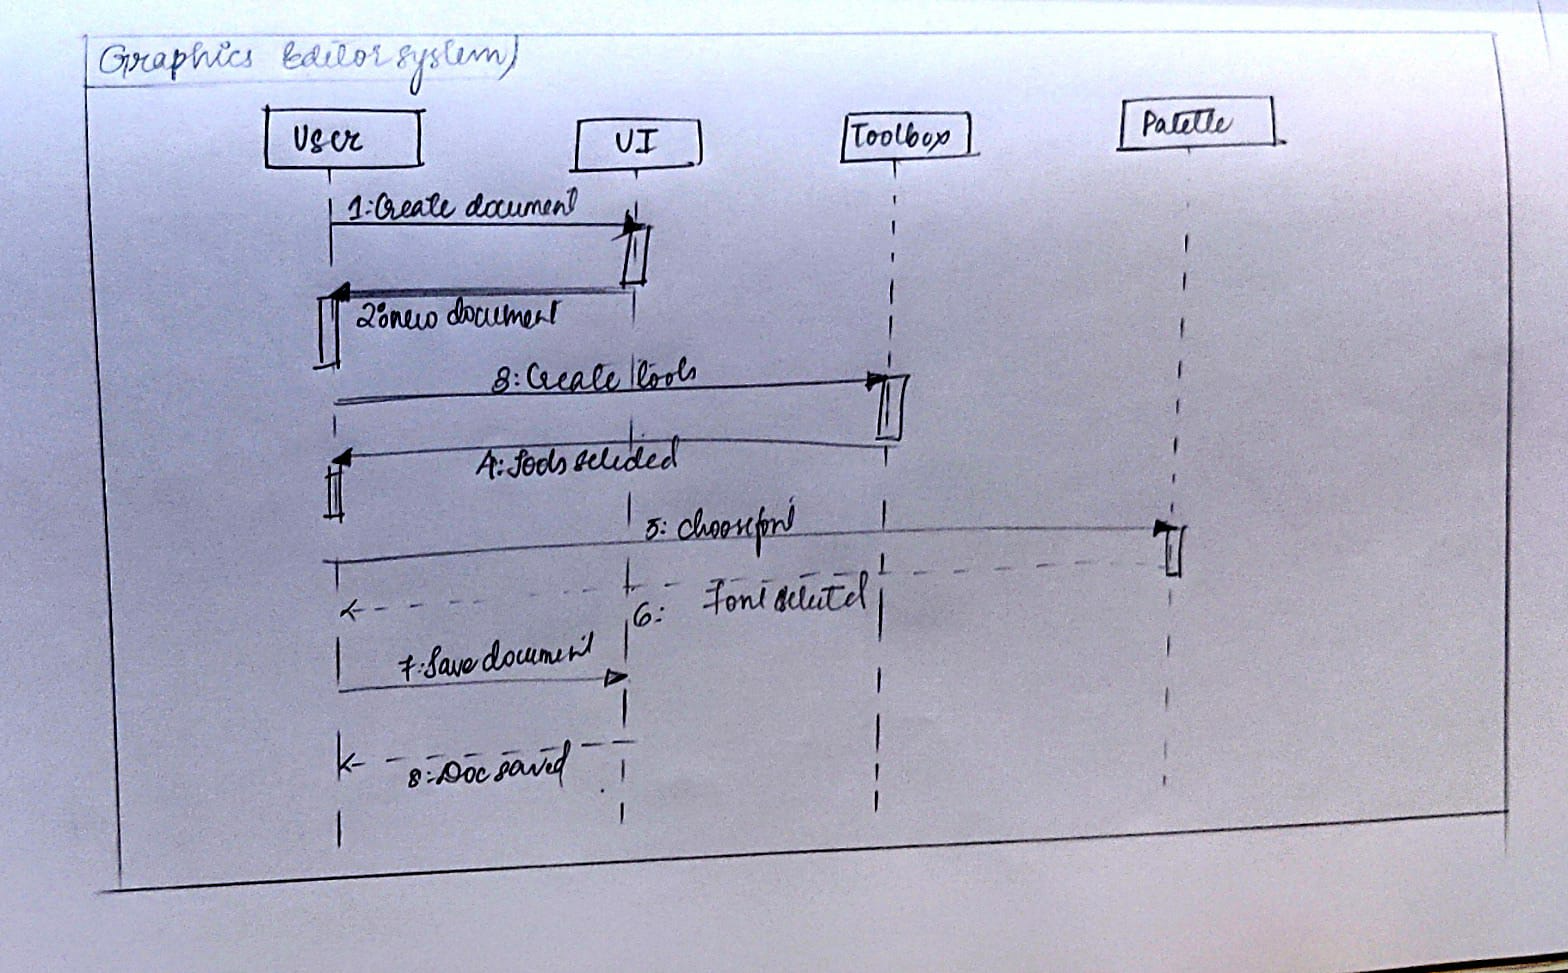 Graphics Editor system
User
UI
Toolbox
Palette
1: Create document
2: new document
3: Create tools
4: Tools selected
5: choose font
6: Font selected
7: Save document
8: Doc saved